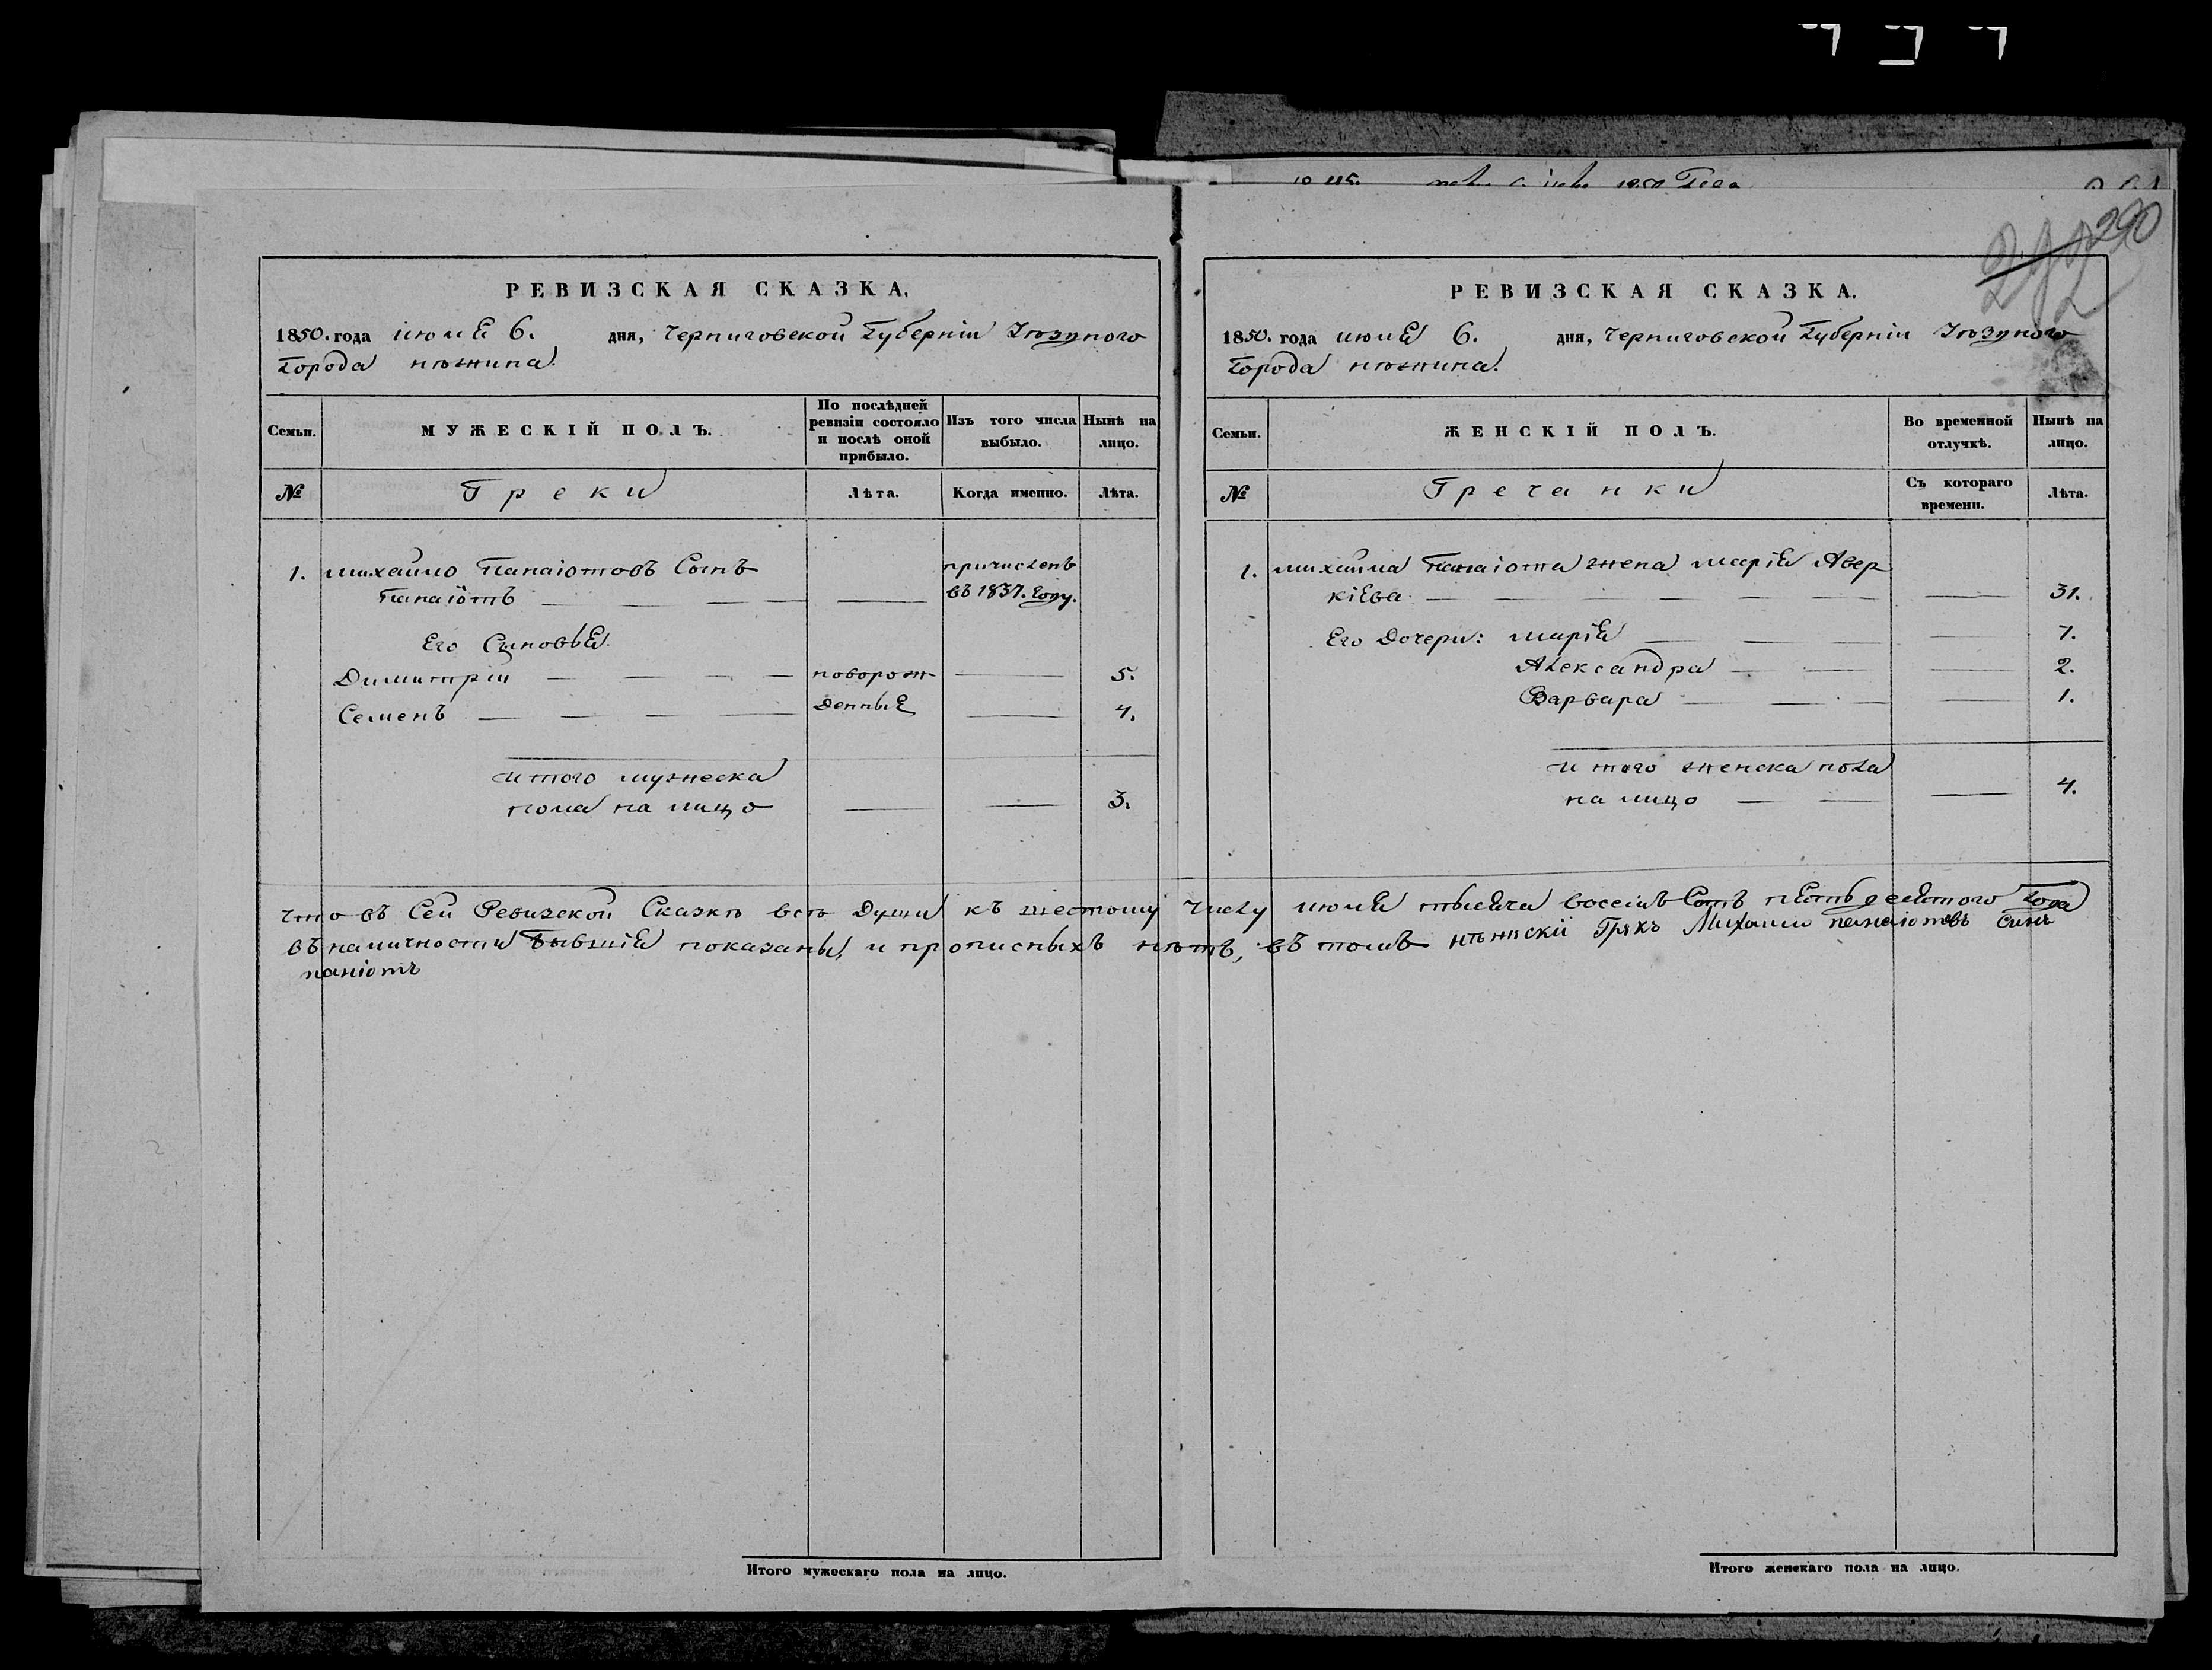 290
РЕВИЗСКАЯ СКАЗКА.
1850. года июля 6. дня, Черниговской Губерніи Уѣзднаго
Города нѣжина.
Семьи.
МУЖЕСКІЙ ПОЛЪ.
По послѣдней ревизіи состояло и послѣ оной прибыло.
Изъ того числа выбыло.
Нынѣ на лицо.
№
Греки
Лѣта.
Когда именно.
Лѣта.
1. михайло Панаіотовъ Сынъ
причисленъ
Панаіотъ
въ 1837. году.
Его Сыновья
Димитрій новорож- 5.
Семенъ денные 4.
итого мужеска
пола на лицо 3.
РЕВИЗСКАЯ СКАЗКА.
1850. года июля 6. дня, Черниговской Губерніи Уѣзднаго
Города нѣжина.
Семьи.
ЖЕНСКІЙ ПОЛЪ.
Во временной отлучкѣ.
Нынѣ на лицо.
№
Гречанки
Съ котораго времени.
Лѣта.
1. михайла Панаіота жена марія Авер
кіева 31.
Его Дочери: марія 7.
Александра 2.
Варвара 1.
итого женска пола
на лицо 4.
что въ Сей Ревизской Сказкѣ всѣ Души къ шестому числу июля тысяча восемъ Сотъ пятьдесятого года
въ наличности бывшія показаны, и прописныхъ нѣтъ, въ томъ нѣжнскіі Грѣкъ Михаило панаіотовъ синъ
паніотъ
Итого мужескаго пола на лицо.
Итого женскаго пола на лицо.